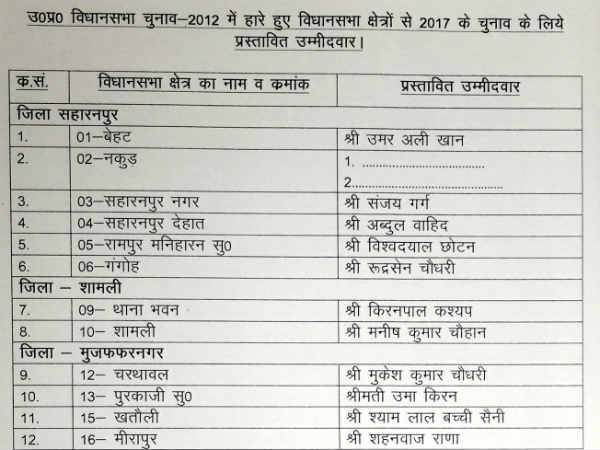 उ0प्र0 विधानसभा चुनाव–2012 में हारे हुए विधानसभा क्षेत्रों से 2017 के चुनाव के लिये
प्रस्तावित उम्मीदवार।
क.सं. विधानसभा क्षेत्र का नाम व क्रमांक प्रस्तावित उम्मीदवार
जिला सहारनपुर
1. 01–बेहट श्री उमर अली खान
2. 02–नकुड़ 1. ..............................
2......................................
3. 03–सहारनपुर नगर श्री संजय गर्ग
4. 04–सहारनपुर देहात श्री अब्दुल वाहिद
5. 05–रामपुर मनिहारन सु0 श्री विश्वदयाल छोटन
6. 06–गंगोह श्री रूद्रसेन चौधरी
जिला – शामली
7. 09– थाना भवन श्री किरनपाल कश्यप
8. 10– शामली श्री मनीष कुमार चौहान
जिला – मुजफफरनगर
9. 12– चरथावल श्री मुकेश कुमार चौधरी
10. 13– पुरकाजी सु0 श्रीमती उमा किरन
11. 15– खतौली श्री श्याम लाल बच्ची सैनी
12. 16– मीरापुर श्री शहनवाज राणा